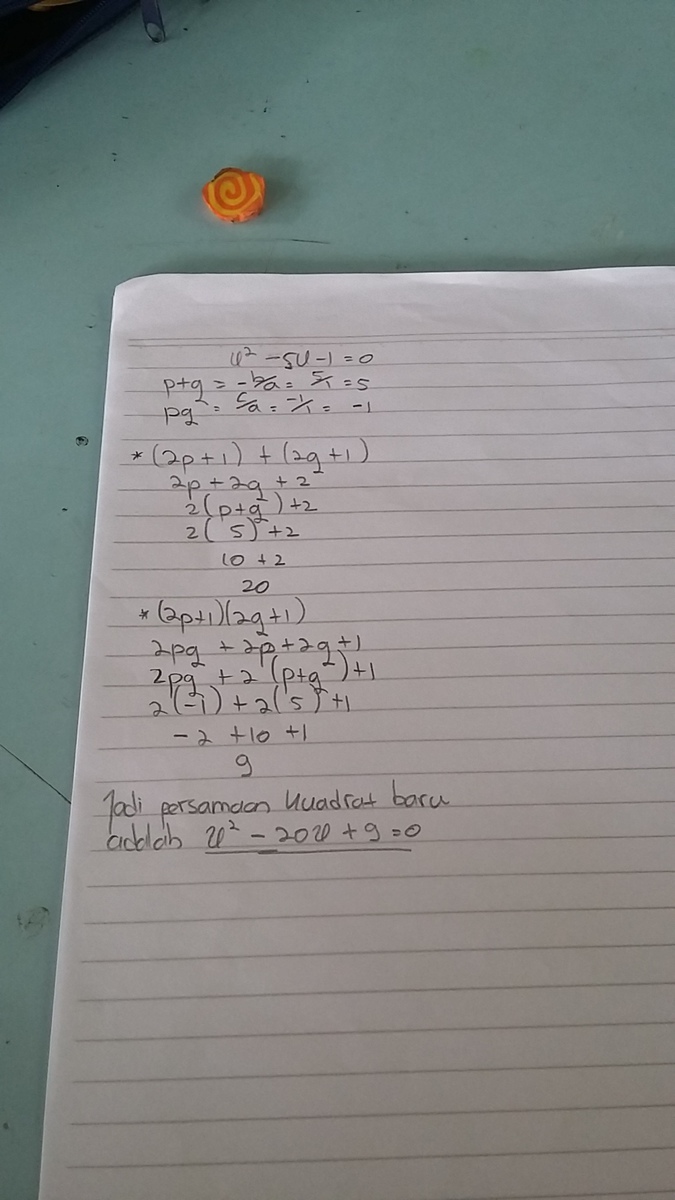 x² - 5x - 1 = 0
p+q = -b/a = 5/1 = 5
pq = c/a = -1/1 = -1
* (2p+1) + (2q+1)
2p + 2q + 2
2(p+q) + 2
2(5) + 2
10 + 2
20
* (2p+1)(2q+1)
2pq + 2p + 2q + 1
2pq + 2(p+q) + 1
2(-1) + 2(5) + 1
-2 + 10 + 1
9
Jadi persamaan kuadrat baru
adalah x² - 20x + 9 = 0